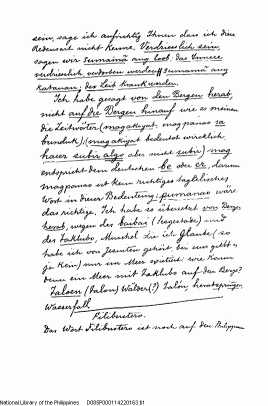 sein, sage ich aufrichtig Ihnen dass ich diese
Redensart nicht kenne. Verdriesslich sein
sagen wir sumamâ ang loob; das Innere
verdriesslich, verdorben werden// Sumamâ ang
katauan; der Leib krank werden.
Ich habe gesagt von den Bergen herab,
nicht auf die Bergen hinauf wie es meinen
die Zeitwörter (magakyat, magpanas sa
bunduk) (magakyat bedeutet wirklich
hacer subir algo aber nicht subir) mag
entspricht dem deutschen be oder er, darum
magpanas ist kein richtiges tagalisches
Wort in dieser Bedeutung; pumanas wäre
das richtige. Ich habe so übersetzt von Berge
herab, wegen des baibai (Seegestade) und
des taklubo, Muschel die ich glaube (so
habe ich von Jesuiten gehört bei uns giebt's
ja kein) nur im Meer existirt: wie kann
denn ein Meer mit Taklubo auf dem Berge?
Talon (dalon) Wälder(?) Talón, herabspringen
Wasserfall
Filibustero.
Das Wort Filibustero ist noch auf den Philippinen
National Library of the Philippines D00SP00011422016381